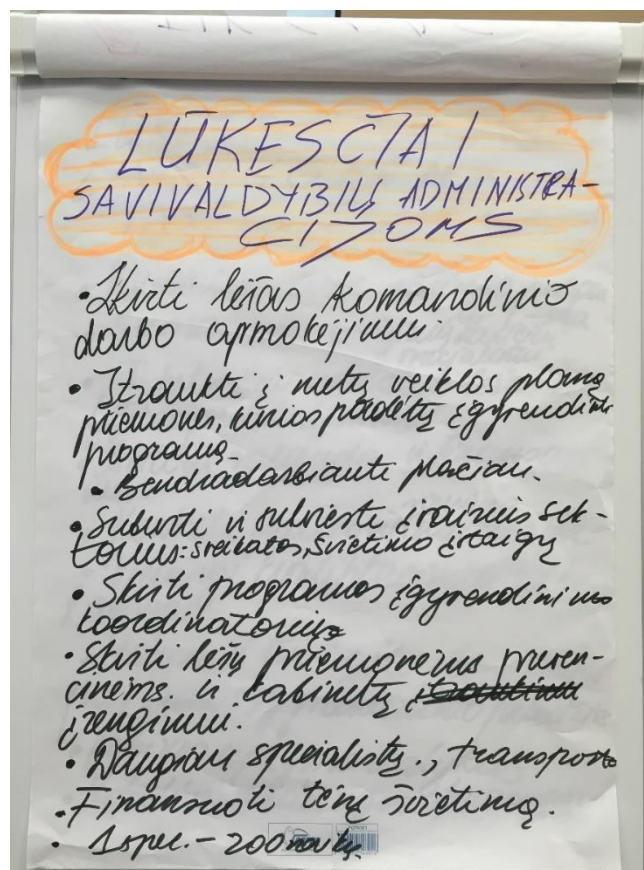 LŪKESČIAI
SAVIVALDYBIŲ ADMINISTRA-
CIJOMS
• Skirti lėšas komandinio
darbo apmokėjimui.
• Įtraukti į metų veiklos planą
priemones, kurios padėtų įgyvendinti
programą.
• Bendradarbiauti plačiau.
• Suburti ir suvienyti įvairius sek-
torius: sveikatos, švietimo įstaigų
• Skirti programos įgyvendinimo
koordinatorius
• Skirti lėšų priemonėms preven-
cinėms. ir kabinetų
įrengimui.
• Daugiau specialistų., transporto
• Finansuoti tėvų švietimą.
• 1 spec. – 200